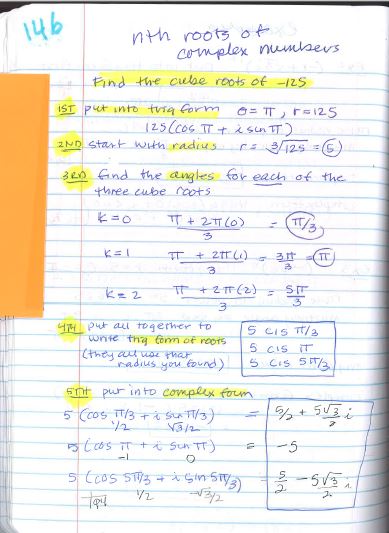 146
nth roots of
complex numbers
Find the cube roots of -125
1ST put into trig form θ = π, r = 125
125 (cos π + i sin π)
2ND start with radius r = ∛125 = 5
3RD find the angles for each of the
three cube roots
k = 0 π + 2π(0) / 3 = π/3
k = 1 π + 2π(1) / 3 = 3π/3 = π
k = 2 π + 2π(2) / 3 = 5π/3
4TH put all together to
write trig form of roots
(they all use that
radius you found)
5 cis π/3
5 cis π
5 cis 5π/3
5TH put into complex form
5 (cos π/3 + i sin π/3) = 5/2 + 5√3/2 i
1/2 √3/2
5 (cos π + i sin π) = -5
-1 0
5 (cos 5π/3 + i sin 5π/3) = 5/2 - 5√3/2 i
1/2 -√3/2